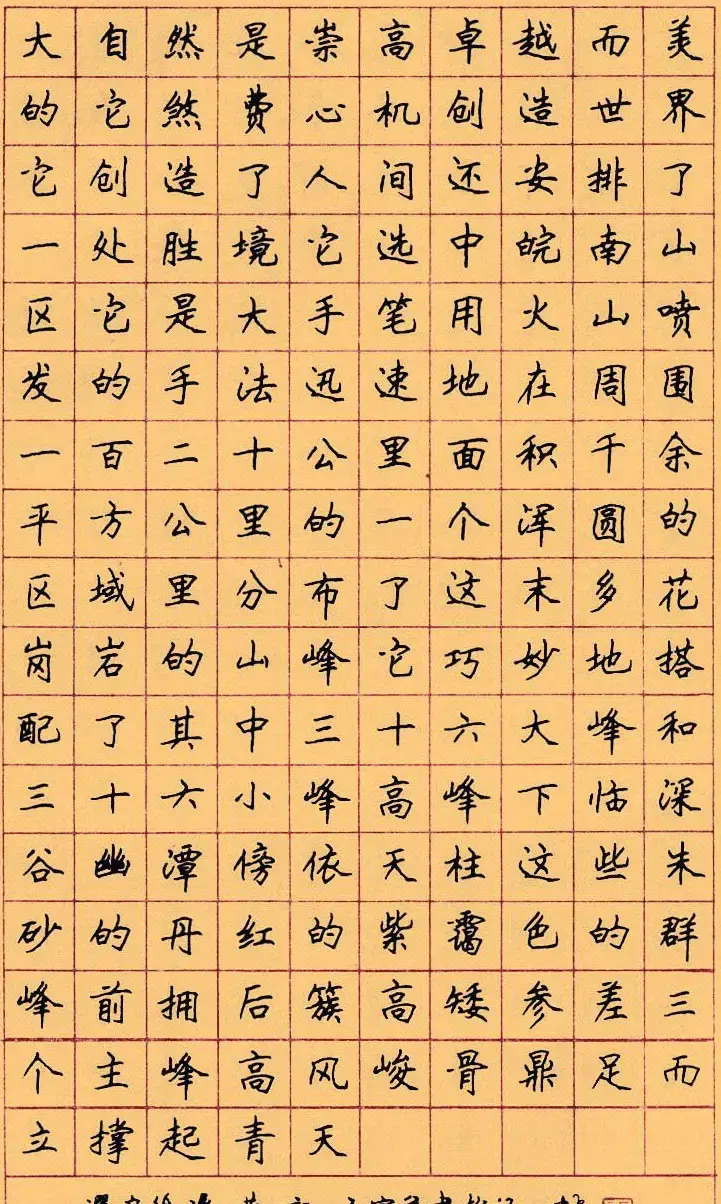 大自然是崇高卓越而美
的它煞费心机创造世界
它创造了人间还安排了
一处胜境它选中皖南山
区它是大手笔用火山喷
发的手法迅速地在周围
一百二十公里面积千余
平方公里的一个浑圆的
区域里分布了这末多花
岗岩的山峰它巧妙地搭
配了其中三十六大峰和
三十六小峰高峰下临深
谷幽潭傍依天柱这些朱
砂的丹红的紫霭色的群
峰前拥后簇高矮参差三
个主峰高风峻骨鼎足而
立撑起青天